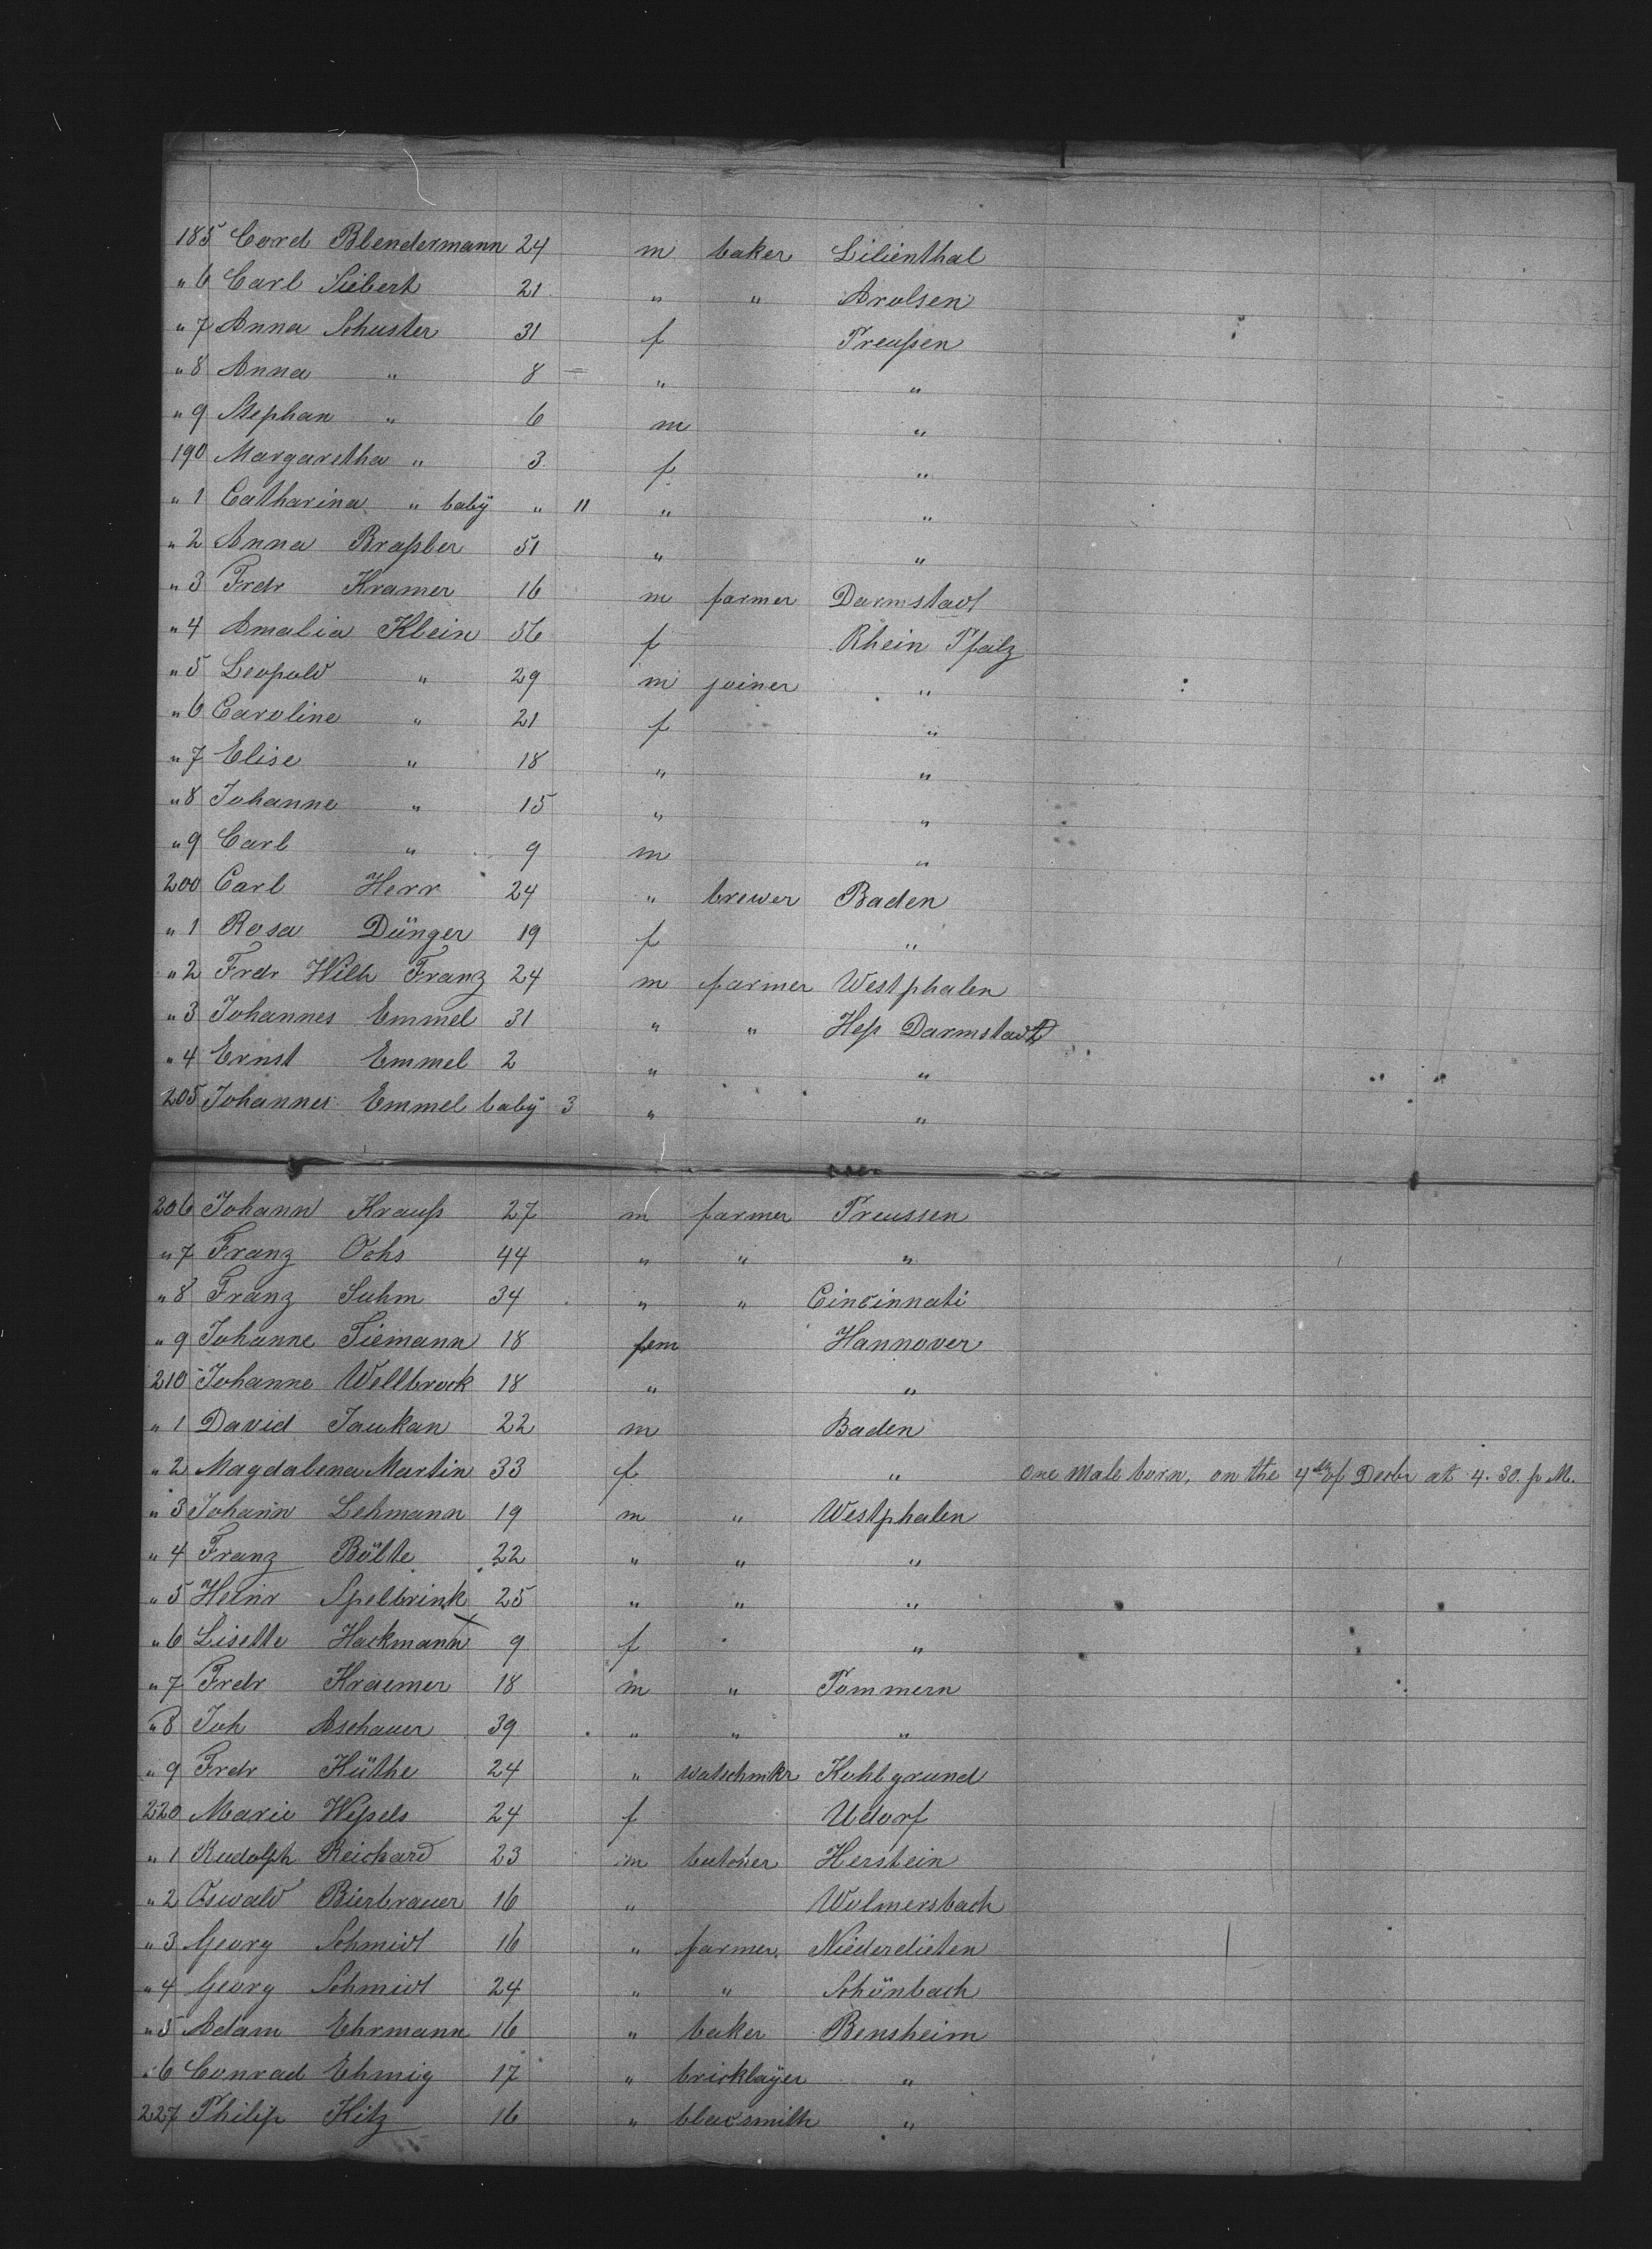 185 Cord Blendermann 24 m baker Lilienthal
" 6 Carl Siebert 21 " " Arolsen
" 7 Anna Schuster 31 f Preußen
" 8 Anna " 8 " "
" 9 Stephan " 6 m "
190 Margaretha " 3 f "
" 1 Catharina " baby " 11 " "
" 2 Anna Braßler 51 " "
" 3 Frdr Kramer 16 m farmer Darmstadt
" 4 Amalia Klein 56 f Rhein Pfalz
" 5 Leopold " 29 m joiner "
" 6 Caroline " 21 f "
" 7 Elise " 18 " "
" 8 Johanne " 15 " "
" 9 Carl " 9 m "
200 Carl Herr 24 " brewer Baden
" 1 Rosa Dünger 19 f "
" 2 Frdr Wilh Franz 24 m farmer Westphalen
" 3 Johannes Emmel 31 " " Heß Darmstadt
" 4 Ernst Emmel 2 " "
205 Johannes Emmel baby 3 " "
206 Johann Krauß 27 m farmer Preussen
" 7 Franz Ochs 44 " " "
" 8 Franz Suhm 34 " " Cincinnati
" 9 Johanne Tiemann 18 fem Hannover
210 Johanne Wellbrock 18 " "
" 1 David Jaukan 22 m Baden
" 2 Magdalena Martin 33 f " One Male born, on the 4th of Decbr at 4.30. p M.
" 3 Johann Lehmann 19 m " Westphalen
" 4 Franz Bölte 22 " " "
" 5 Heinr Spelbrink 25 " " "
" 6 Lisette Hackmann 9 f "
" 7 Frdr Kraemer 18 m " Pommern
" 8 Joh Aschauer 39 " " "
" 9 Frdr Küthe 24 " watschmkr Kohlgrund
220 Marie Weßels 24 f Udorf
" 1 Rudolph Reichard 23 m butcher Herstein
" 2 Oswald Bierbrauer 16 " Wolmersbach
" 3 Georg Schmidt 16 " farmer Niederdieten
" 4 Georg Schmidt 24 " " Schönbach
" 5 Adam Ehrmann 16 " baker Bensheim
" 6 Conrad Ehmig 17 " bricklayer "
227 Philip Hitz 16 " blacsmith "